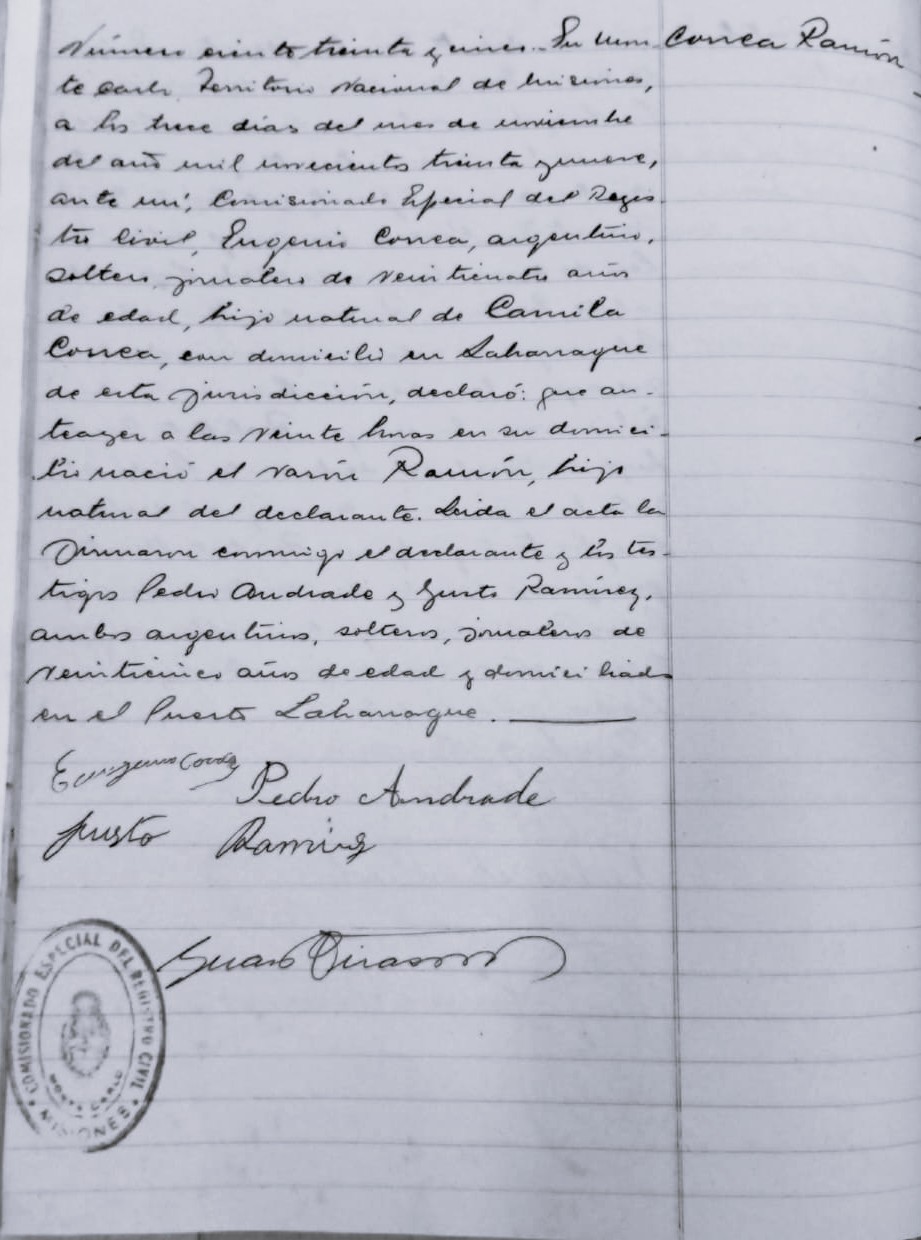 Número ciento treinta y cinco. En Mon-
te carlo Territorio Nacional de Misiones,
a los trece días del mes de noviembre
del año mil novecientos treinta y nueve,
ante mí, Comisionado Especial del Regis-
tro Civil, Eugenio Correa, argentino,
soltero, jornalero de veinticuatro años
de edad, hijo natural de Camila
Correa, con domicilio en Laharrague
de esta jurisdicción, declaró: que an-
teayer a las veinte horas en su domici-
lio nació el varón Ramón, hijo
natural del declarante. Leida el acta la
firmaron conmigo el declarante y los tes-
tigos Pedro Andrade y Justo Ramírez,
ambos argentinos, solteros, jornaleros de
veinticinco años de edad y domiciliados
en el Puerto Laharrague.
Correa Ramón
Eugenio Correa
Pedro Andrade
Justo Ramirez
Juan
COMISIONADO ESPECIAL DEL REGISTRO CIVIL
MONTE CARLO
MISIONES